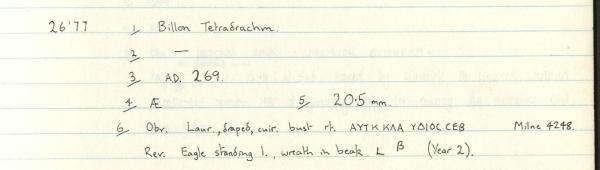 26'77 1 Billon Tetradrachm.
2 —
3 AD. 269.
4 Æ 5 20.5 mm.
6 Obv. Laur., draped, cuir. bust rt. ΑΥΤΚ ΚΛΑ ΥΔΙΟC CЄΒ Milne 4248.
Rev. Eagle standing l., wreath in beak. L Β (Year 2).